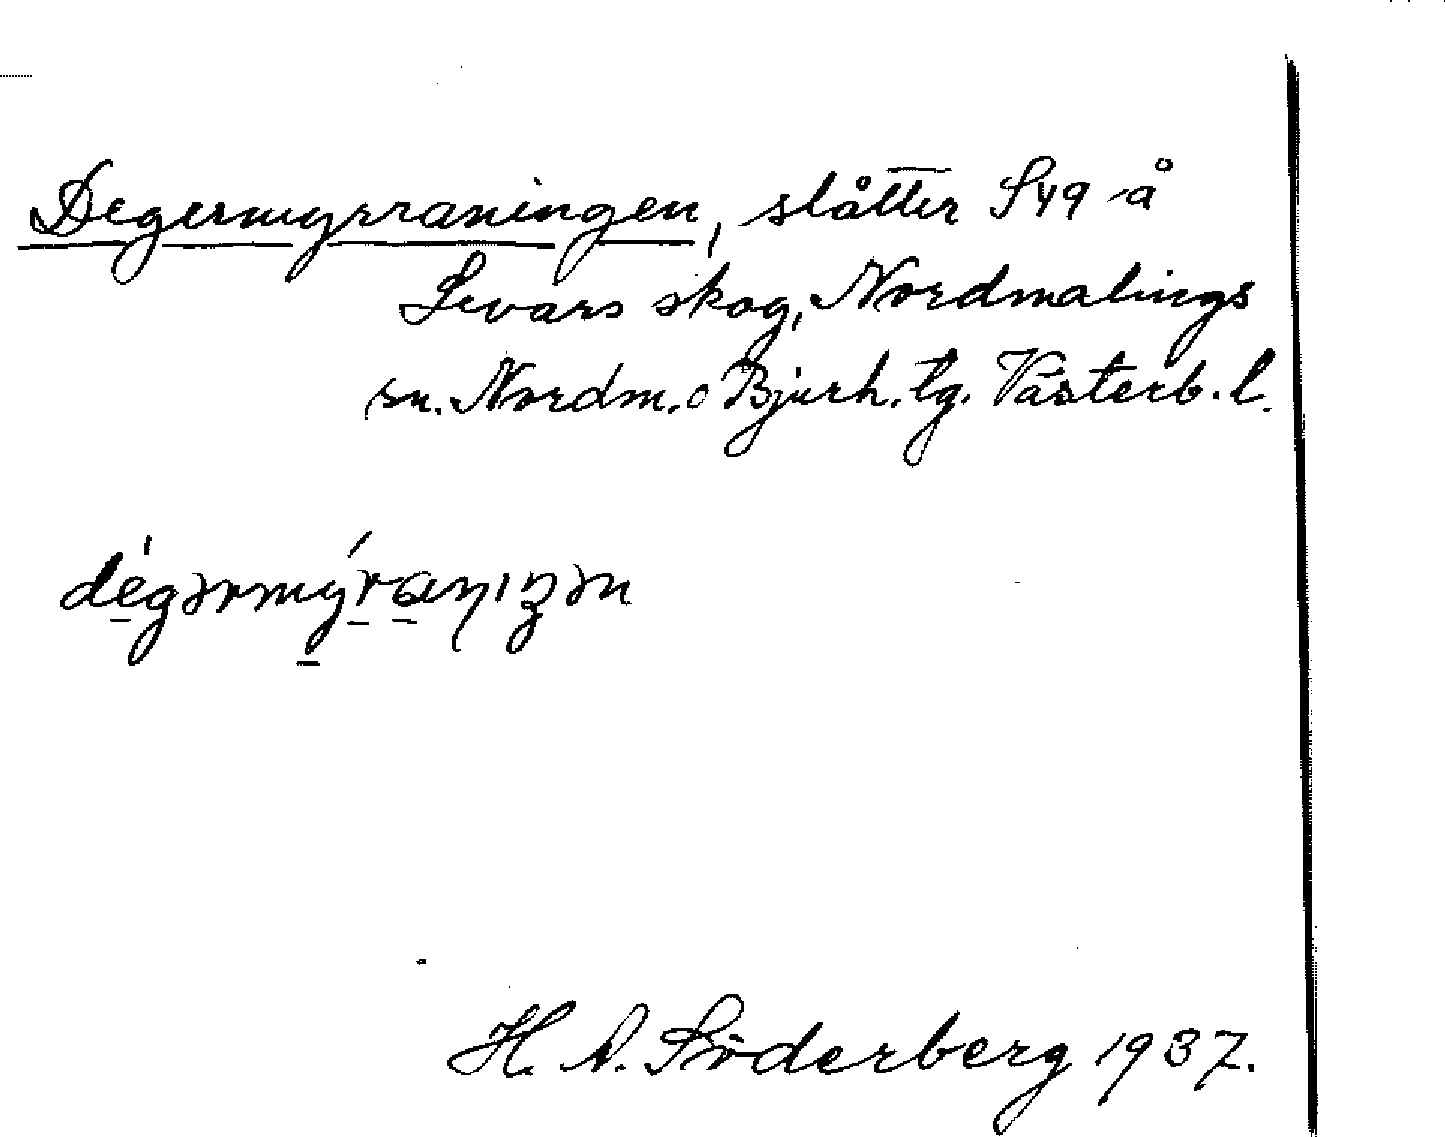 Degermyrraningen, slåtter S49 å
Levars skog, Nordmalings
sn. Nordm. o Bjurh. tg. Västerb. l.
dégərmýraɳıŋən
H. A. Söderberg 1937.